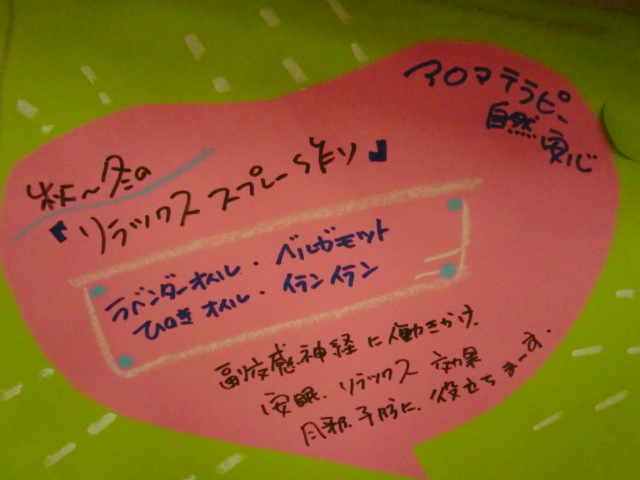 アロマテラピー
自然 安心
秋〜冬の
『リラックススプレー作り』
ラベンダーオイル・ベルガモット
ひのきオイル・イランイラン
副交感神経に働きかけ
安眠、リラックス効果
風邪予防に、役立ちまーす。